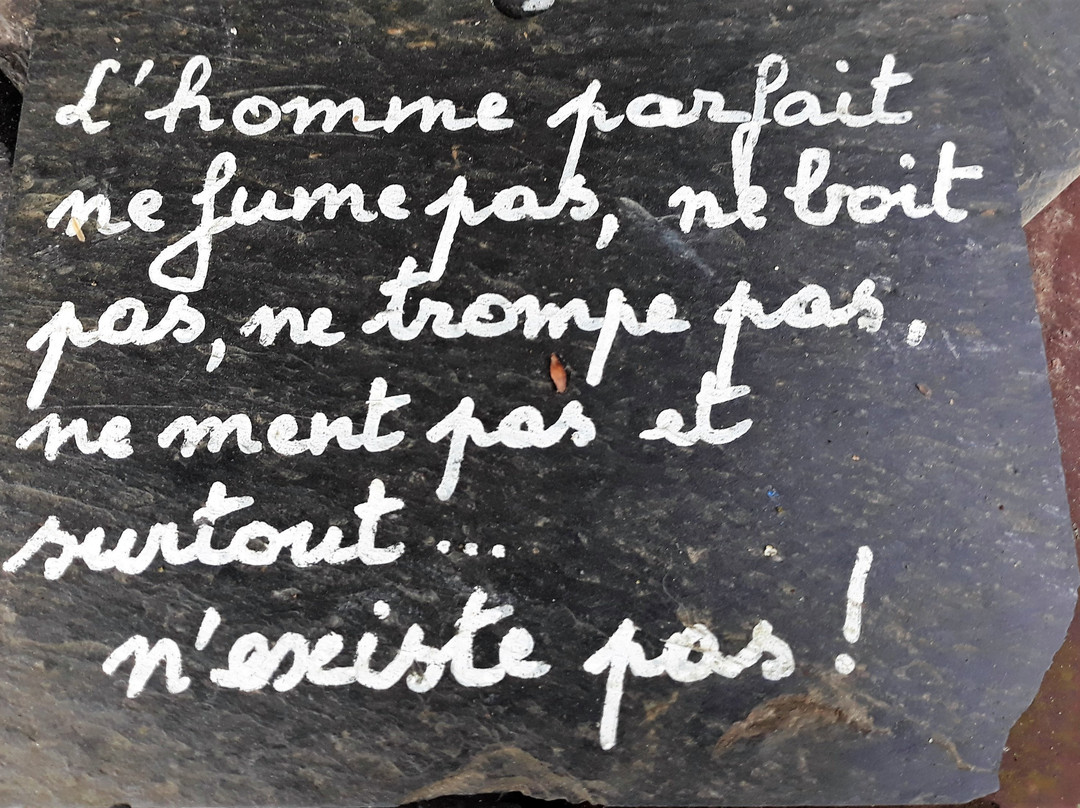 L'homme parfait
ne fume pas, ne boit
pas, ne trompe pas,
ne ment pas et
surtout ...
n'existe pas !